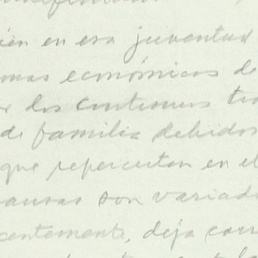 ien en era juventud
mas económicos de
dos continuos tra
de familia debidos
que repercuten en el
causas son variad
centemente, deja corr